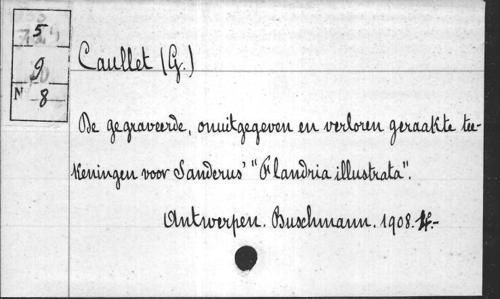 5
9
N 8
Caullet (G.)
De gegraveerde, onuitgegeven en verloren geraakte tee-
keningen voor Sanderus' "Flandria illustrata".
Antwerpen. Buschmann. 1908.